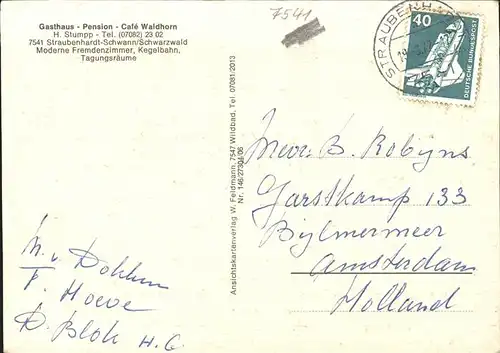 7541
Gasthaus - Pension - Café Waldhorn
H. Stumpp - Tel. (07082) 23 02
7541 Straubenhardt-Schwann/Schwarzwald
Moderne Fremdenzimmer, Kegelbahn,
Tagungsräume
STRAUBENHA
40
DEUTSCHE BUNDESPOST
Ansichtskartenverlag W. Feldmann, 7547 Wildbad, Tel. 07081/2013
Nr. 146/27304/06
B. Robijns
Garstkamp 133
Bijlmermeer
Amsterdam
Holland
M. v Dokkum
F. Hoeve
D. Blok H.G.